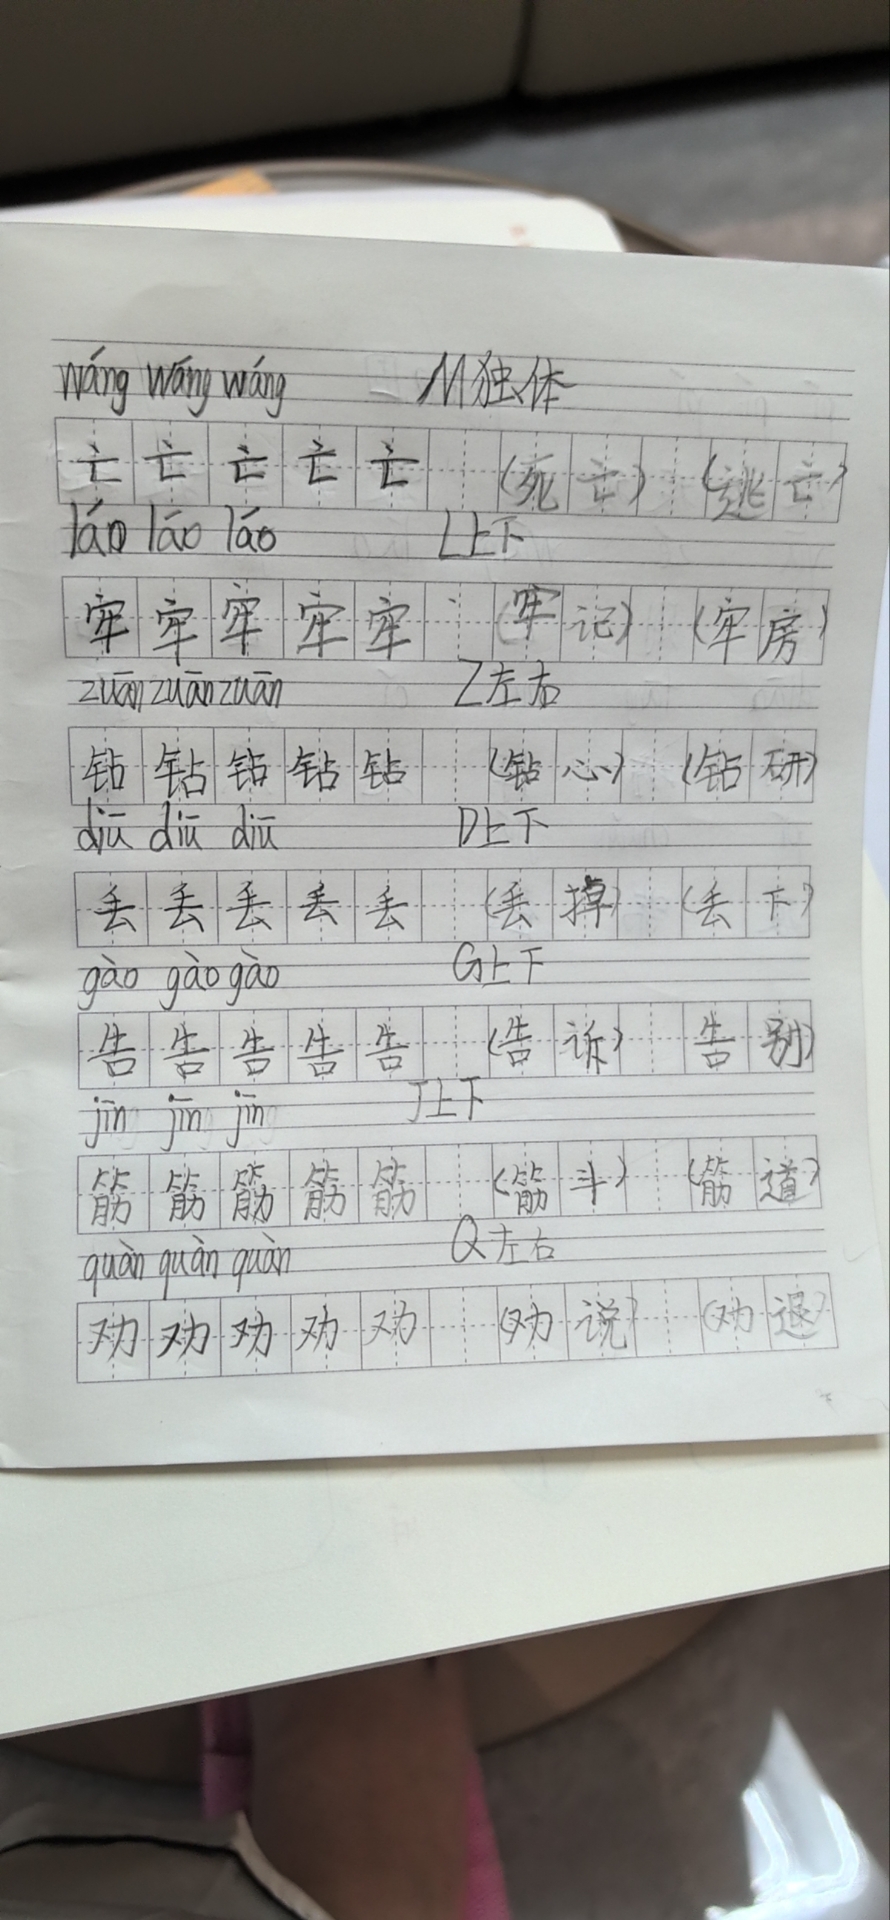 wáng wáng wáng M独体
亡 亡 亡 亡 亡 (死亡) (逃亡)
láo láo láo L上下
牢 牢 牢 牢 牢 (牢记) (牢房)
zuān zuān zuān Z左右
钻 钻 钻 钻 钻 (钻心) (钻研)
diū diū diū D上下
丢 丢 丢 丢 丢 (丢掉) (丢下)
gào gào gào G上下
告 告 告 告 告 (告诉) 告别)
jīn jīn jīn J上下
筋 筋 筋 筋 筋 (筋斗) (筋道)
quàn quàn quàn Q左右
劝 劝 劝 劝 劝 (劝说) (劝退)